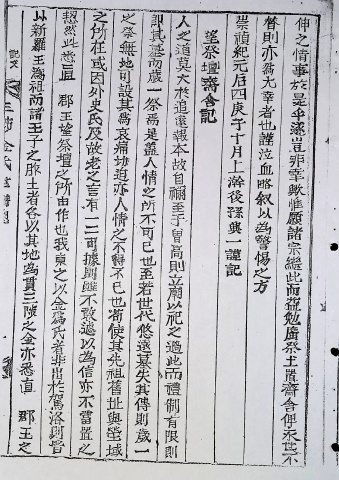 伸之情事於是乎遂豈非幸歟惟願諸宗繼此而益勉廣祭土置齋舍俾永世不
替則亦爲大幸者也謹泣血略叙以爲警惕之方
崇禎紀元后四庚子十月上澣後孫興一謹記
望祭壇齋舍記
人之道莫大於追遠報本故自禰至于曾高則立廟以祀之過此而禮制有限則
卽其墓而歲一祭焉是蓋人情之所不可已也至若世代悠遠墓失其傳則歲一
之祭無地可設其爲哀痛迫亦人情之不得不已也若使其先祖舊址與塋域
之所在或因外史氏及故老之言有一二可據則雖不敢遽以爲信亦不當置之
恝然此悉直 郡王望祭壇之所由作也我東之以金爲氏者非出於駕洛則皆
以新羅王爲祖而諸王子之胙土者各以其地爲貫三陟之金亦悉直 郡王之